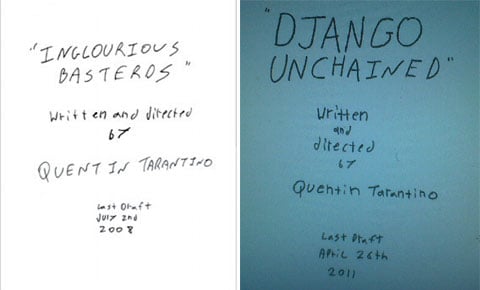 "INGLOURIOUS
BASTERDS"
Written and directed
by
QUENTIN TARANTINO
Last Draft
July 2nd
2008
"DJANGO
UNCHAINED"
Written
and
directed
by
Quentin Tarantino
Last Draft
April 26th
2011